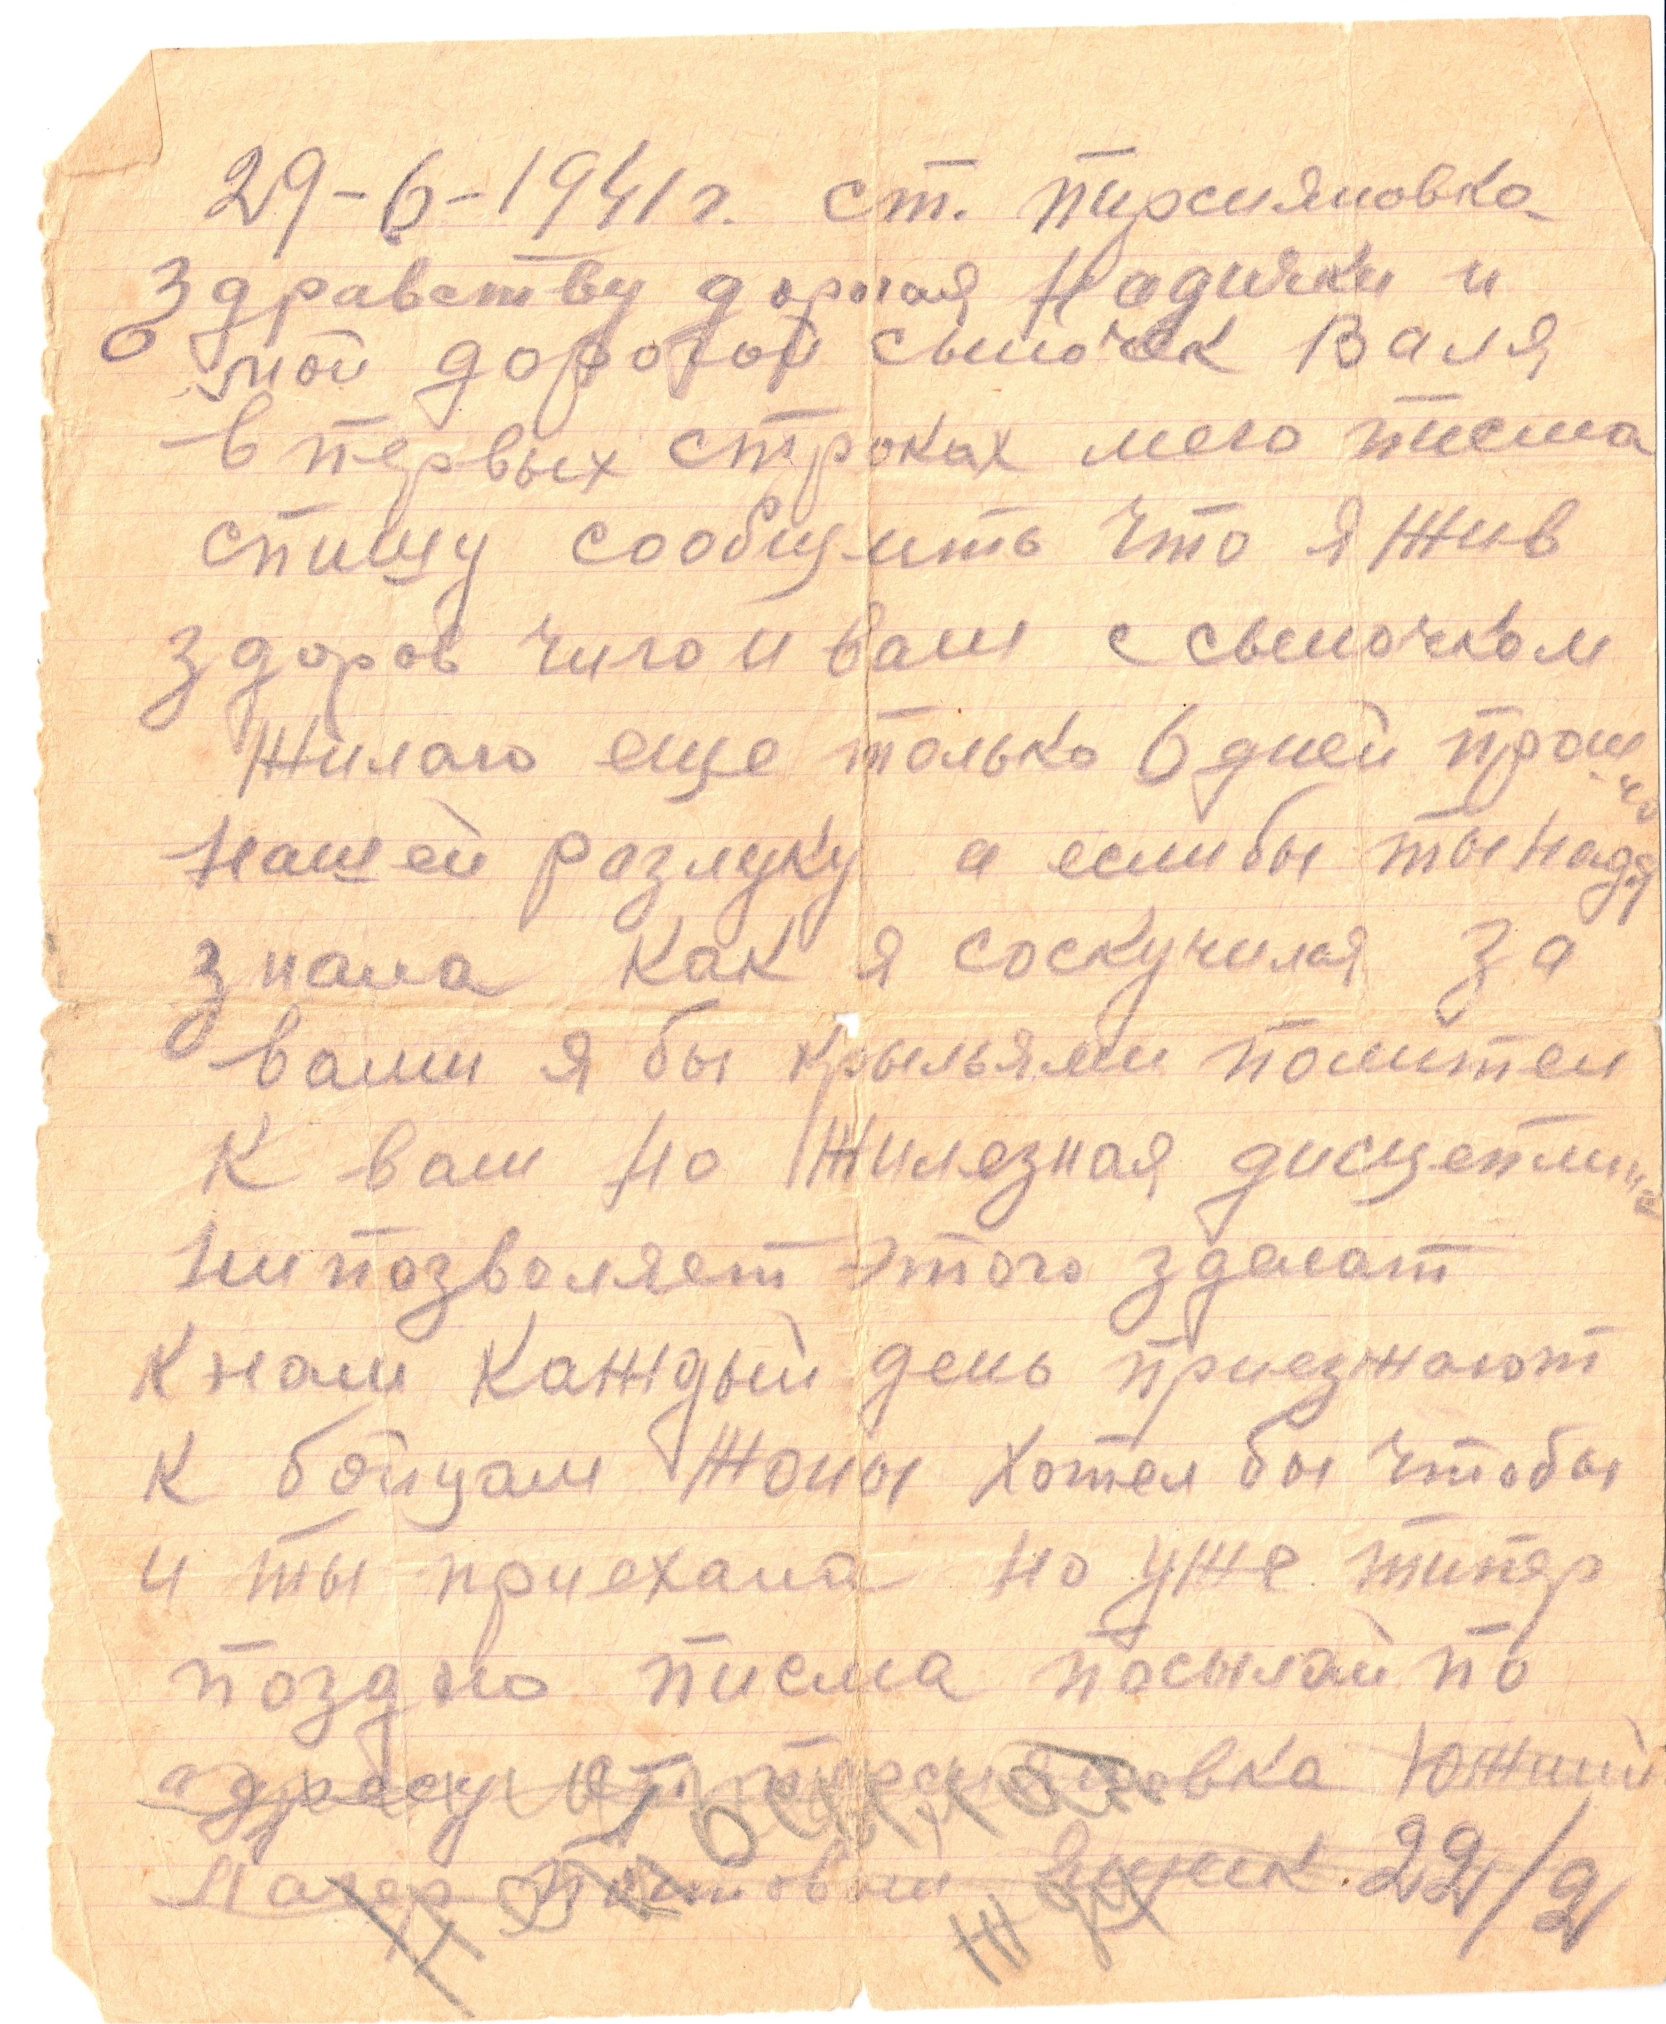 29-6-1941 г. ст. Пирсияновка
Здравству дорогая Надички и
мой дорогой сыночек Валя
в первых строках мего писма
спишу сообщить что я жив
здоров чиго и вам с сыночком
жилаю еще только 6 дней прошло
нашей разлуку а еслибы ты Надя
знала как я соскучился за
вами я бы крыльями полител
к вам но жилезная дисцеплина
ни позволяет этого зделат
к нам каждый день приезжают
к бойцам жоны хотел бы чтобы
и ты приехала но уже типер
поздно писма посылай по
адресу ст. Пирсияновка Южний
Лагер Почтовий Ящик 22/2
жди